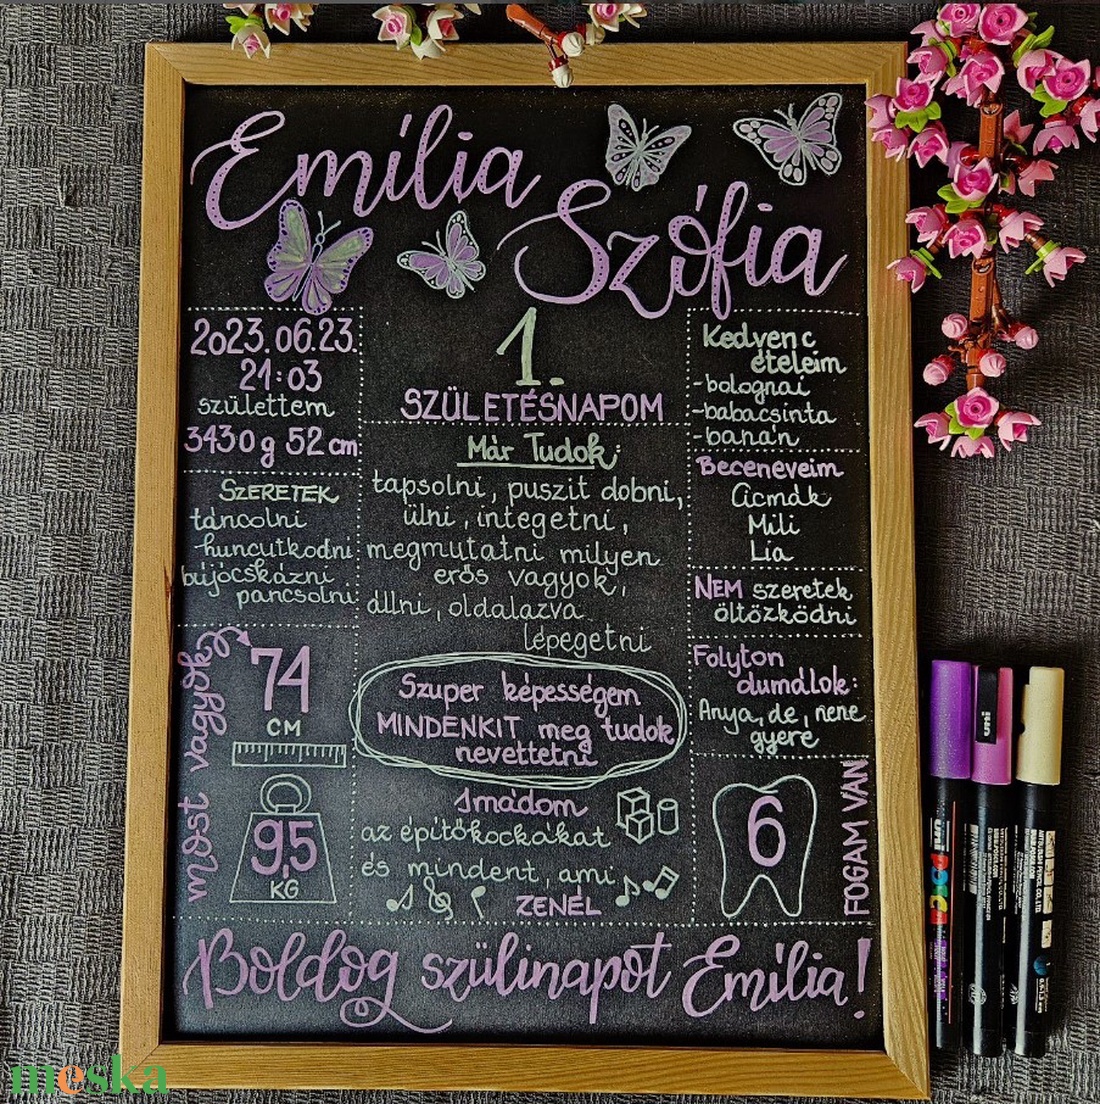 Emília
Szófia
2023.06.23.
21:03
születtem
3430g 52cm
1.
SZÜLETÉSNAPOM
Kedvenc
ételeim
-bolognai
-babacsinta
-banán
SZERETEK
táncolni
huncutkodni
bújócskázni
pancsolni
Már Tudok:
tapsolni, puszit dobni,
ülni, integetni,
megmutatni milyen
erős vagyok,
állni, oldalazva
lépegetni
Beceneveim
Mili
Lia
NEM szeretek
öltözködni
Folyton
dumálok:
Anya, de, nene
gyere
most vagyok
74
CM
9,5
KG
Szuper képességem
MINDENKIT meg tudok
nevettetni
Imádom
az építőkockákat
és mindent, ami
ZENÉL
6
FOGAM VAN
Boldog szülinapot Emília!
uni
POSCA
meska